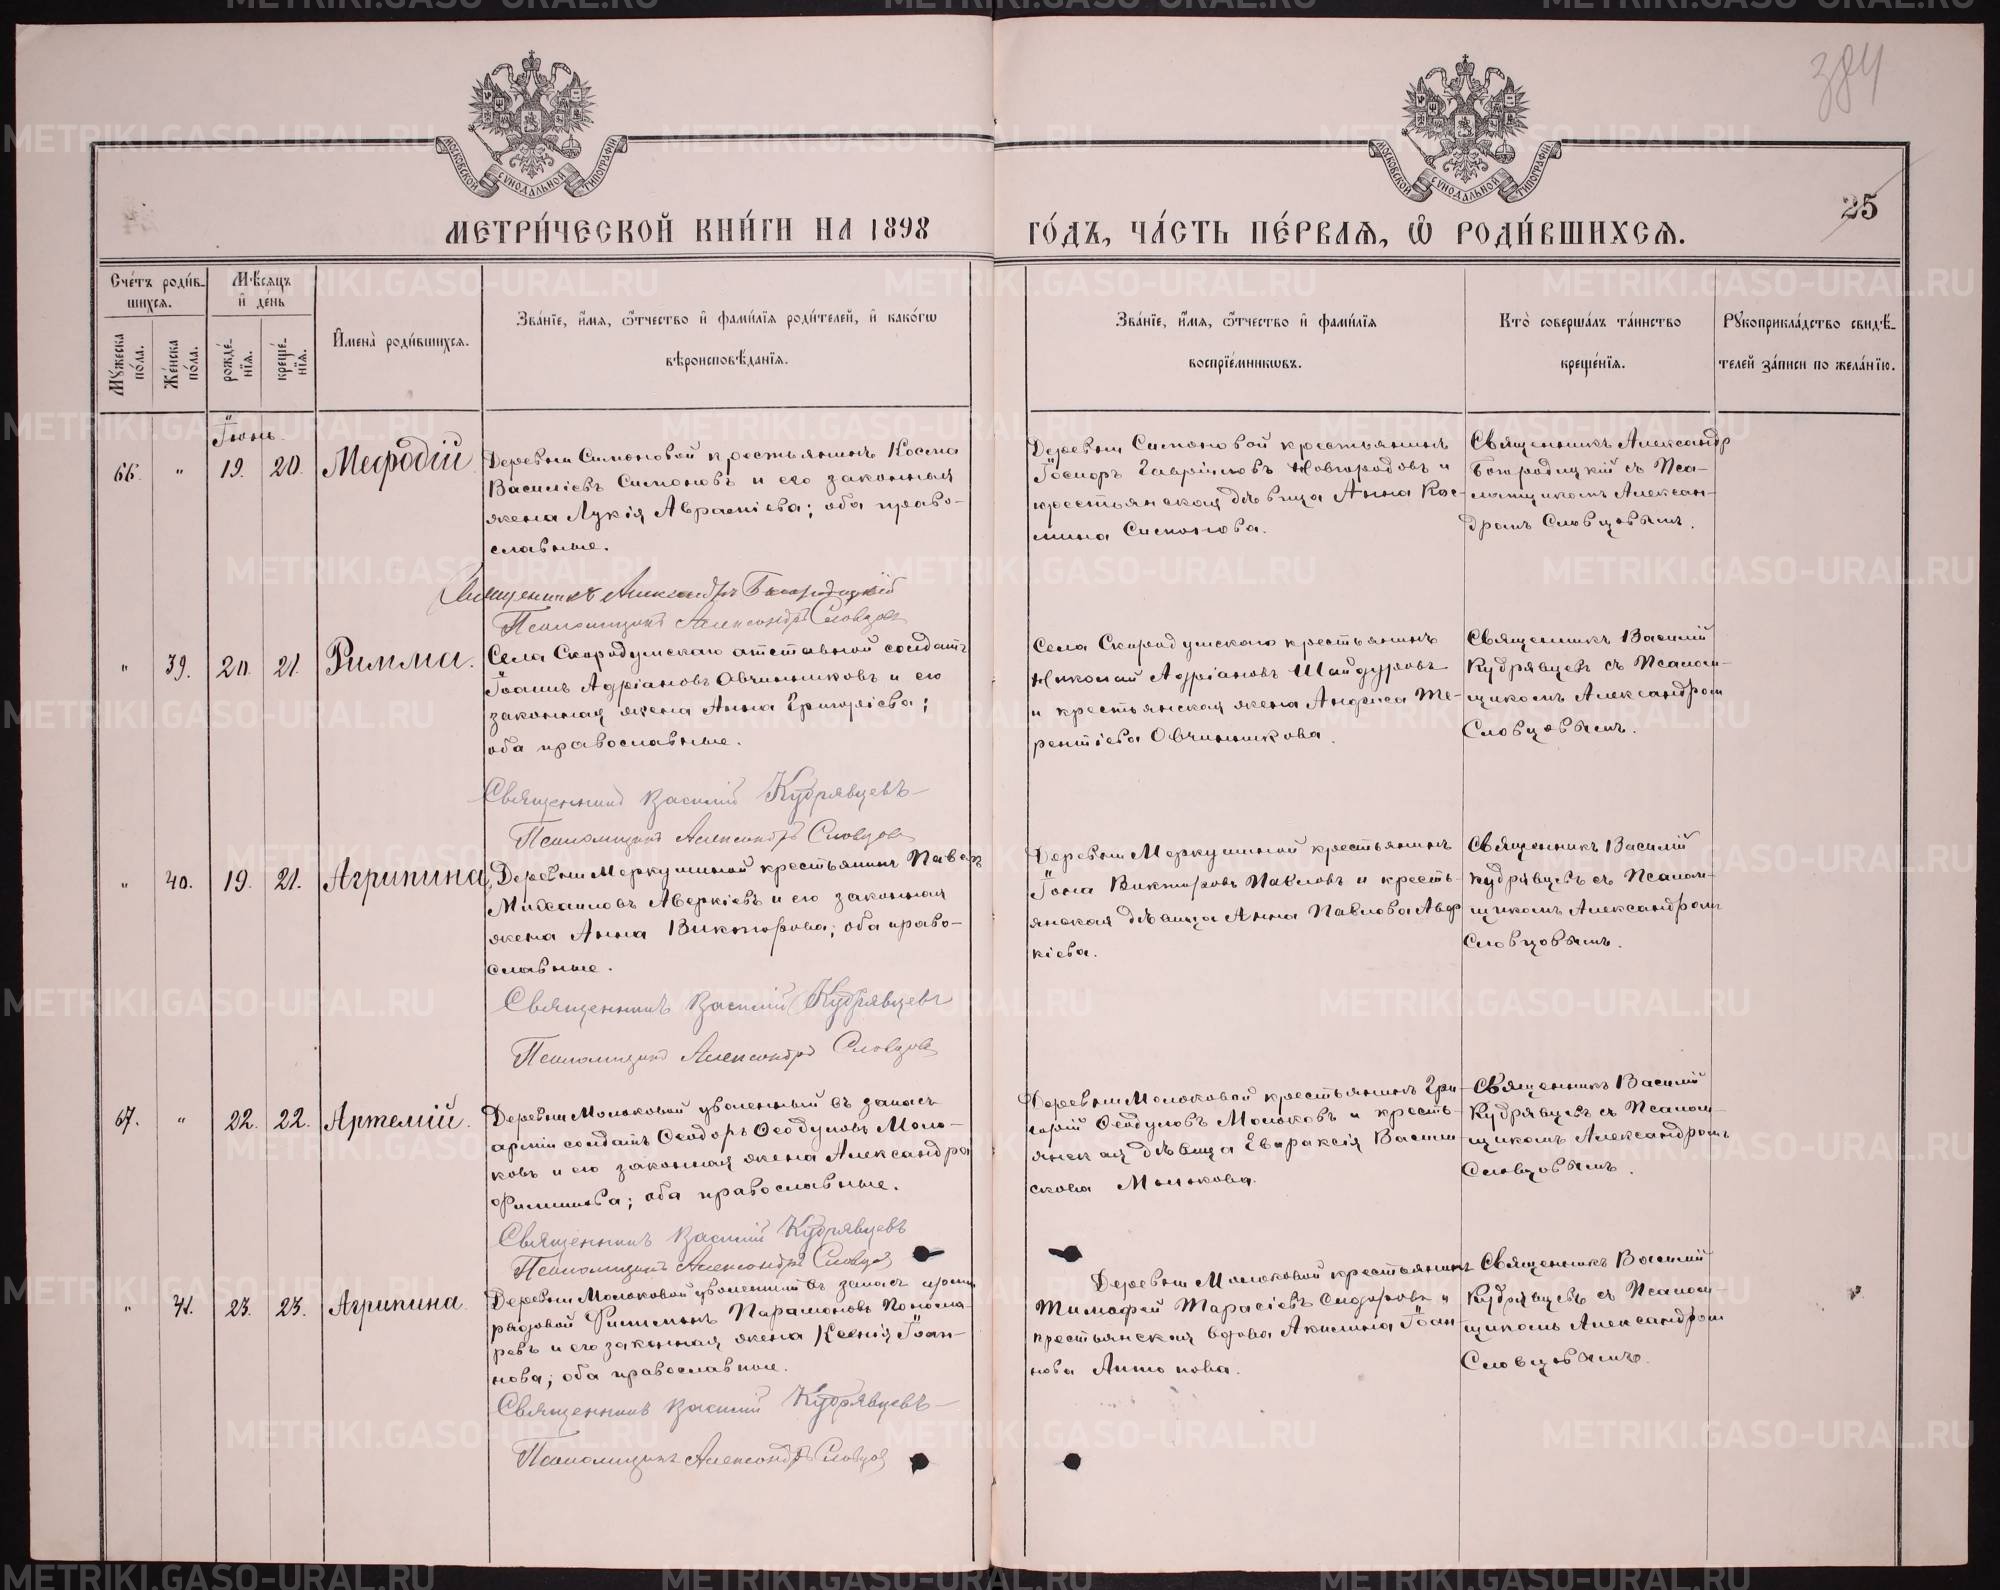 384
МОСКОВСКОЙ СУНОДАЛЬНОЙ ТИПОГРАФІИ
МОСКОВСКОЙ СУНОДАЛЬНОЙ ТИПОГРАФІИ
25
МЕТРИ́ЧЕСКОЙ КНИ́ГИ НА 1898
ГО́ДЪ, ЧА́СТЬ ПЕ́РВАЯ, Ѿ РОДИ́ВШИХСЯ.
Сче́тъ роди́в-
шихся.
Мꙋжеска по́ла.
Же́нска по́ла.
Мѣ́сяцъ
и҆ де́нь
рожде́-нїя.
креще́-нїя.
И҆мена̀ роди́вшихся.
Зва́нїе, и҆́мя, ѻ҆́тчество и҆ фами́лїя роди́телей, и҆ како́гѡ
вѣроисповѣ́данїя.
Зва́нїе, и҆́мя, ѻ҆́тчество и҆ фами́лїя
воспрїе́мникѡвъ.
Кто̀ соверша́лъ та́инство
креще́нїя.
Рꙋкоприкла́дство свидѣ́-
телей за́писи по жела́нїю.
Іюнь.
66. " 19. 20. Меѳодій
Деревни Симоновой крестьянинъ Косма
Василіевъ Симоновъ и его законная
жена Лукія Авраміева; оба право-
славные.
Священникъ Александръ Богородицкій
Псаломщикъ Александръ Словцовъ
Деревни Симоновой крестьянинъ
Гавриловъ Новгородовъ и
крестьянская дѣвица Анна Кос-
мина Симонова.
Священникъ Александръ
Богородицкій съ Пса-
ломщикомъ Алексан-
дромъ Словцовымъ.
" 39. 20. 21. Римма.
Села Скородумскаго отставной солдатъ
Іоаннъ Адріановъ Овчинниковъ и его
законная жена Анна Григоріева;
оба православные.
Священникъ Василій Кудрявцевъ
Псаломщикъ Александръ Словцовъ
Села Скородумскаго крестьянинъ
Николай Адріановъ Шайдуровъ
и крестьянская жена Анфиса Те-
рентіева Овчинникова.
Священникъ Василій
Кудрявцевъ съ Псалом-
щикомъ Александромъ
Словцовымъ.
" 40. 19. 21. Агрипина
Деревни Меркушиной крестьянинъ Павелъ
Михаиловъ Аверкіевъ и его законная
жена Анна Викторова; оба право-
славные.
Священникъ Василій Кудрявцевъ
Псаломщикъ Александръ Словцовъ
Деревни Меркушиной крестьянинъ
Іона Викторовъ Павловъ и кресть-
янская дѣвица Анна Павлова Авер
кіева.
Священникъ Василій
Кудрявцевъ съ Псалом-
щикомъ Александромъ
Словцовымъ.
67. " 22. 22. Артемій.
Деревни Молоковой уволенный въ запасъ
арміи солдатъ Ѳеодоръ Ѳеодуловъ Моло-
ковъ и его законная жена Александра
Филиппова; оба православные.
Священникъ Василій Кудрявцевъ
Псаломщикъ Александръ Словцовъ
Деревни Молоковой крестьянинъ Гри-
горій Ѳеодуловъ Молоковъ и кресть-
янская дѣвица Евпраксія Васили-
скова Молокова.
Священникъ Василій
Кудрявцевъ съ Псалом-
щикомъ Александромъ
Словцовымъ.
" 41. 23. 23. Агрипина
Деревни Молоковой уволенный въ запасъ арміи
рядовой Филимонъ Парамоновъ Понома-
ревъ и его законная жена Ксенія Іоан-
нова; оба православные.
Священникъ Василій Кудрявцевъ
Псаломщикъ Александръ Словцовъ
Деревни Молоковой крестьянинъ
Тимофей Тарасіевъ Сидоровъ и
крестьянская вдова Акилина Іоан
нова Антонова.
Священникъ Василій
Кудрявцевъ съ Псалом-
щикомъ Александромъ
Словцовымъ.
METRIKI.GASO-URAL.RU